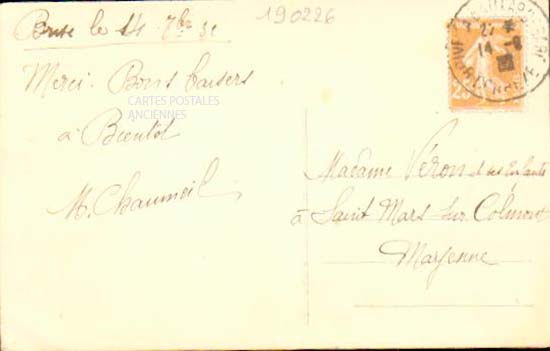 190226
le 14 7bre 31
Merci. Bons baisers
à Bientot
M. Chaumeil
CARTES POSTALES
ANCIENNES
Madame Véron et ses Enfants
à Saint Mars sur Colmont
Mayenne